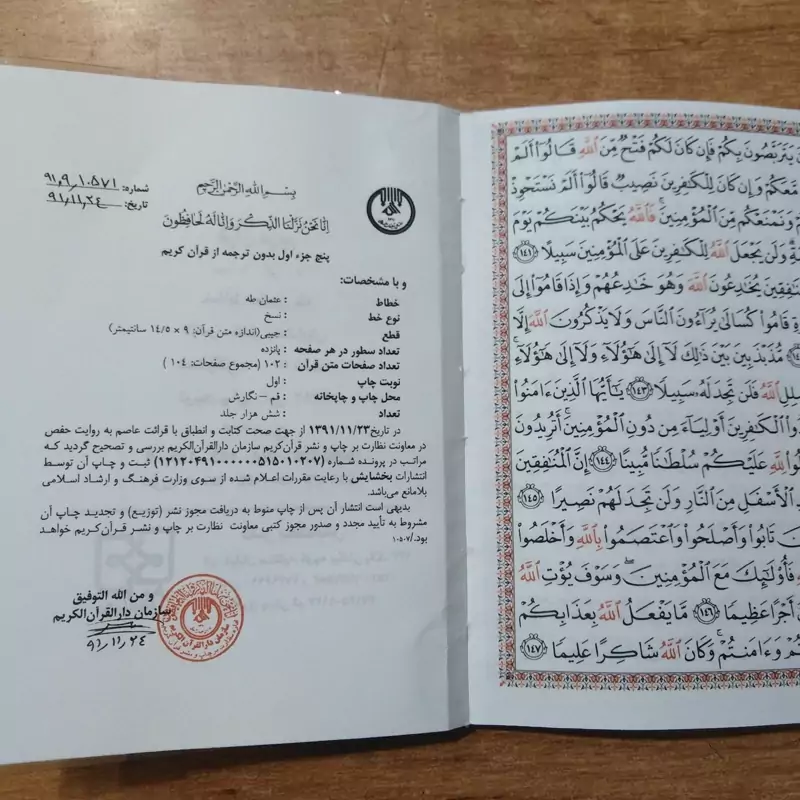 بِسْمِ اللهِ الرَّحْمٰنِ الرَّحِيمِ
إِنَّا نَحْنُ نَزَّلْنَا الذِّكْرَ وَإِنَّا لَهُ لَحَافِظُونَ
شماره: ۹۱,۹,۱۰۵۷۱
تاریخ: ۹۱,۱۱,۲۴
پنج جزء اول بدون ترجمه از قرآن کریم
و با مشخصات:
خطاط : عثمان طه
نوع خط : نسخ
قطع : جیبی(اندازه متن قرآن: ۹ × ۱۴/۵ سانتیمتر)
تعداد سطور در هر صفحه : پانزده
تعداد صفحات متن قرآن : ۱۰۲ (مجموع صفحات: ۱۰۴ )
نوبت چاپ : اول
محل چاپ و چاپخانه : قم – نگارش
تعداد : شش هزار جلد
در تاریخ۱۳۹۱/۱۱/۲۳ از جهت صحت کتابت و انطباق با قرائت عاصم به روایت حفص
در معاونت نظارت بر چاپ و نشر قرآن‌کریم سازمان دارالقرآن‌الکریم بررسی و تصحیح گردید که
مراتب در پرونده شماره (۱۲۱۲۰۴۹۱۰۰۰۰۰۰۵۱۵۰۱۰۲۰۷) ثبت و چاپ آن توسط
انتشارات بخشایش با رعایت مقررات اعلام شده از سوی وزارت فرهنگ و ارشاد اسلامی
بلامانع می‌باشد.
بدیهی است انتشار آن پس از چاپ منوط به دریافت مجوز نشر (توزیع) و تجدید چاپ آن
مشروط به تأیید مجدد و صدور مجوز کتبی معاونت نظارت بر چاپ و نشر قرآن کریم خواهد
بود./۱۰۵۰۷
و من الله التوفیق
سازمان دارالقرآن‌الکریم
۹۱,۱۱,۲۴
يَتَرَبَّصُونَ بِكُمْ فَإِن كَانَ لَكُمْ فَتْحٌ مِّنَ ٱللَّهِ قَالُوٓا۟ أَلَمْ
مَّعَكُمْ وَإِن كَانَ لِلْكَٰفِرِينَ نَصِيبٌ قَالُوٓا۟ أَلَمْ نَسْتَحْوِذْ
وَنَمْنَعْكُم مِّنَ ٱلْمُؤْمِنِينَ ۚ فَٱللَّهُ يَحْكُمُ بَيْنَكُمْ يَوْمَ
وَلَن يَجْعَلَ ٱللَّهُ لِلْكَٰفِرِينَ عَلَى ٱلْمُؤْمِنِينَ سَبِيلًا ﴿١٤١﴾
يُخَٰدِعُونَ ٱللَّهَ وَهُوَ خَٰدِعُهُمْ وَإِذَا قَامُوٓا۟ إِلَى
قَامُوا۟ كُسَالَىٰ يُرَآءُونَ ٱلنَّاسَ وَلَا يَذْكُرُونَ ٱللَّهَ إِلَّا
مُّذَبْذَبِينَ بَيْنَ ذَٰلِكَ لَآ إِلَىٰ هَٰٓؤُلَآءِ وَلَآ إِلَىٰ هَٰٓؤُلَآءِ ۚ
ٱللَّهُ فَلَن تَجِدَ لَهُۥ سَبِيلًا ﴿١٤٣﴾ يَٰٓأَيُّهَا ٱلَّذِينَ ءَامَنُوا۟
ٱلْكَٰفِرِينَ أَوْلِيَآءَ مِن دُونِ ٱلْمُؤْمِنِينَ ۚ أَتُرِيدُونَ
لِلَّهِ عَلَيْكُمْ سُلْطَٰنًا مُّبِينًا ﴿١٤٤﴾ إِنَّ ٱلْمُنَٰفِقِينَ
ٱلْأَسْفَلِ مِنَ ٱلنَّارِ وَلَن تَجِدَ لَهُمْ نَصِيرًا ﴿١٤٥﴾
تَابُوا۟ وَأَصْلَحُوا۟ وَٱعْتَصَمُوا۟ بِٱللَّهِ وَأَخْلَصُوا۟
فَأُو۟لَٰٓئِكَ مَعَ ٱلْمُؤْمِنِينَ ۖ وَسَوْفَ يُؤْتِ ٱللَّهُ
أَجْرًا عَظِيمًا ﴿١٤٦﴾ مَّا يَفْعَلُ ٱللَّهُ بِعَذَابِكُمْ
وَءَامَنتُمْ ۚ وَكَانَ ٱللَّهُ شَاكِرًا عَلِيمًا ﴿١٤٧﴾